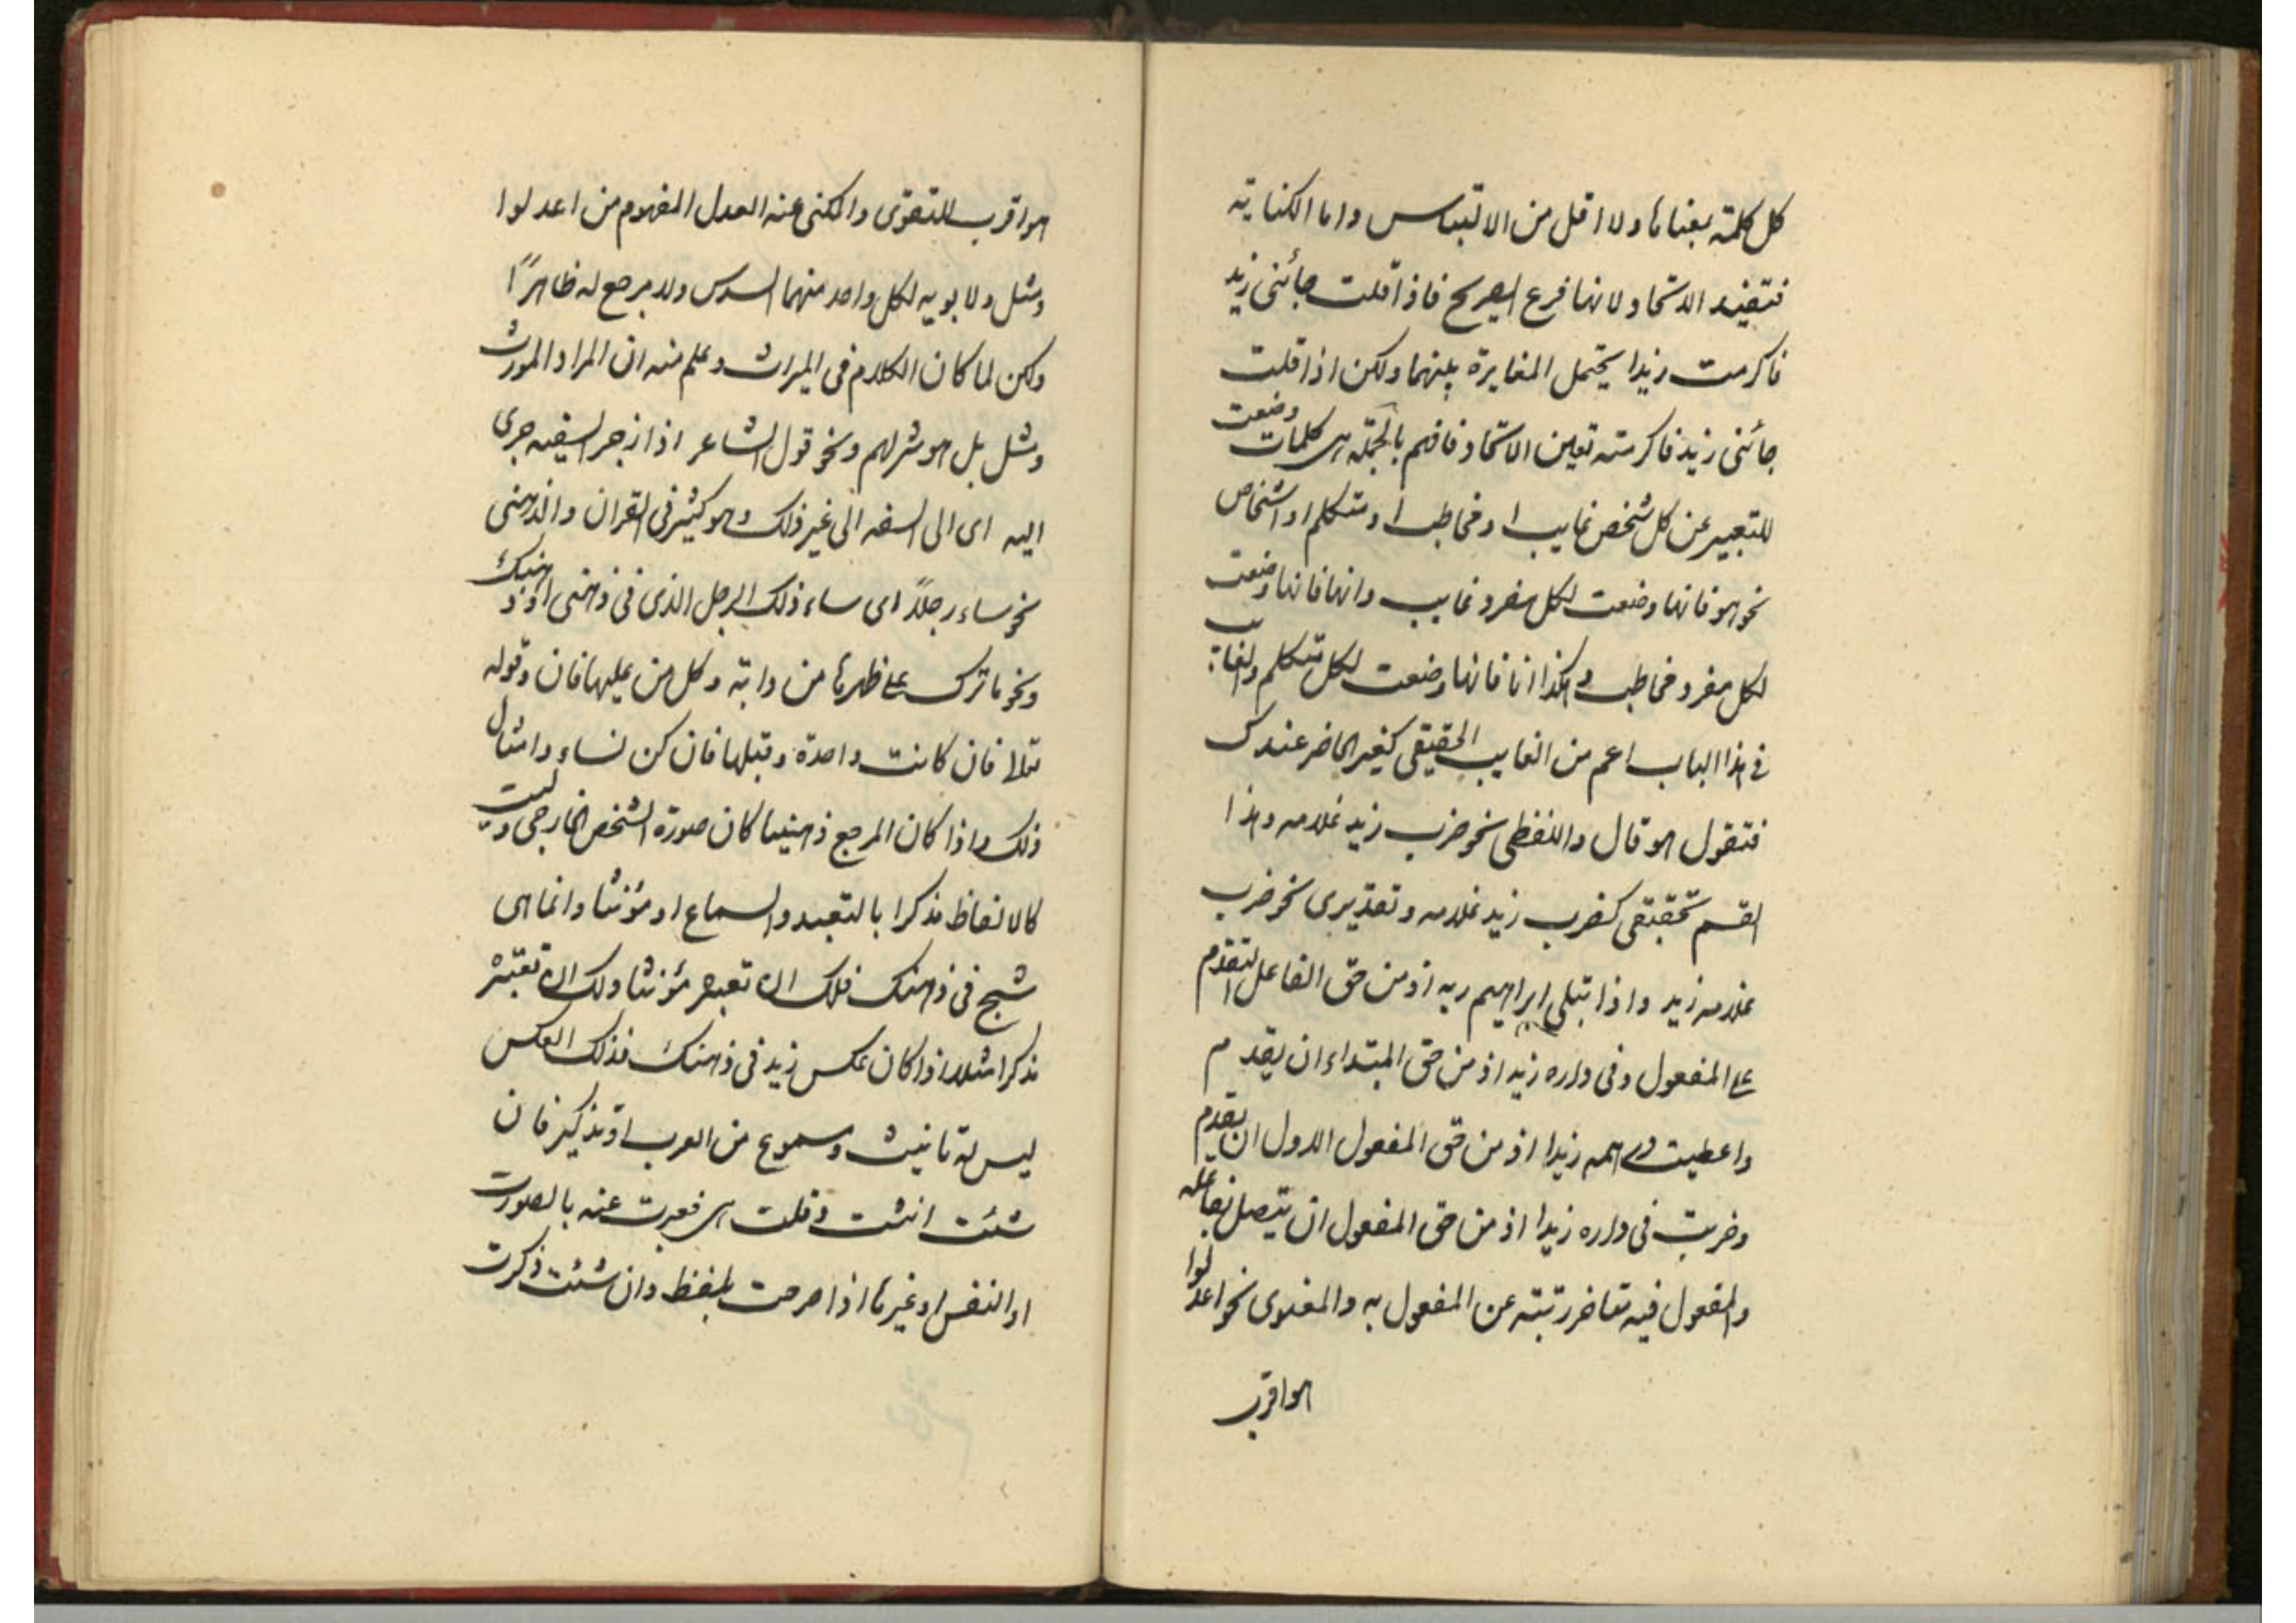 كل كلمة بمعناها ولا اقل من الالتباس واما الكناية
فتفيد الاتحاد لانها فرع الصريح فاذا قلت جائنى زيد
فاكرمت زيدا يحتمل المغايرة بينهما ولكن اذا قلت
جائنى زيد فاكرمته تعين الاتحاد فافهم بالجملة هى كلمات وضعت
للتعبير عن كل شخص غايب او مخاطب او متكلم او اشخاص
نحو هو فانها وضعت لكل مفرد غايب وانها فانها وضعت
لكل مفرد مخاطب وهكذا انا فانها وضعت لكل متكلم والغايب
فى هذا الباب اعم من الغايب الحقيقى كغير الحاضر عندك
فتقول هو قال واللفظى نحو ضرب زيد غلامه وهذا
القسم تحقيقى كضرب زيد غلامه وتقديرى نحو ضرب
غلامه زيد واذا بتلى ابراهيم ربه اذ من حق الفاعل التقدم
على المفعول وفى داره زيد اذ من حق المبتداء ان يقدم
واعطيت درهمه زيدا اذ من حق المفعول الاول ان يقدم
وضربت فى داره زيدا اذ من حق المفعول ان يتصل بفاعله
والمفعول فيه متاخر رتبته عن المفعول به والمعنوى نحو اعدلوا
هو اقرب
هو اقرب للتقوى والمكنى عنه العدل المفهوم من اعدلوا
ومثل ولابويه لكل واحد منهما السدس ولا مرجع له ظاهرًا
ولكن لما كان الكلام فى الميراث وعلم منه ان المراد المورث
ومثل بل هو شر لهم ونحو قول الشاعر اذا زجر السفيه جرى
اليه اى الى السفه الى غير ذلك وهو كثير فى القران والذهنى
نحو ساء رجلاً اى ساء ذلك الرجل الذى فى ذهنى او ذهنك
ونحو ما ترك على ظهرها من دابة وكل من عليها فان وقوله
مثلا فان كانت واحدة وقبلها فان كن نساء وامثال
ذلك واذا كان المرجع ذهنيا كان صورة الشخص الخارجى وليست
كالالفاظ مذكرا بالتعبد والسماع او مؤنثا وانما هى
شبح فى ذهنك فلك ان تعبره مؤنثا ولك ان تعتبره
مذكرا مثلا اذا كان عكس زيد فى ذهنك فذلك العكس
ليس له تانيث مسموع من العرب او تذكير فان
شئت انثت وقلت هى فعبرت عنه بالصورت
او النفس او غيرها اذا صرحت بلفظ وان شئت ذكرت